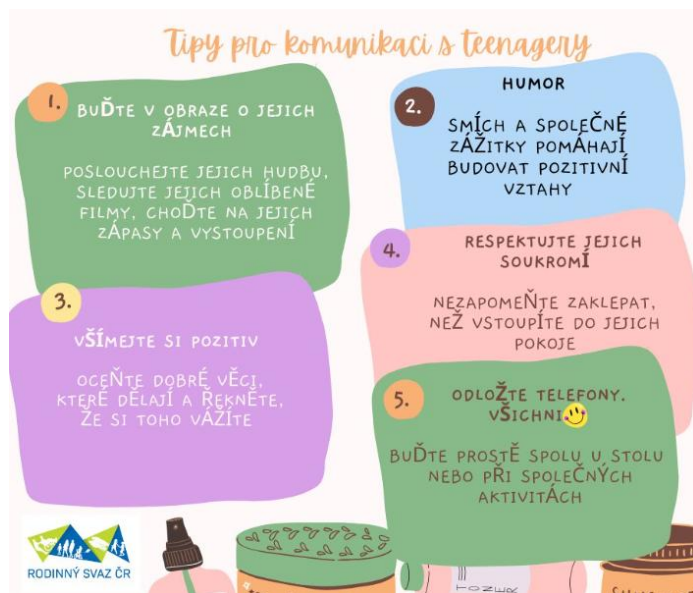 Tipy pro komunikaci s teenagery
1.
BUĎTE V OBRAZE O JEJICH
ZÁJMECH
POSLOUCHEJTE JEJICH HUDBU,
SLEDUJTE JEJICH OBLÍBENÉ
FILMY, CHOĎTE NA JEJICH
ZÁPASY A VYSTOUPENÍ
2.
HUMOR
SMÍCH A SPOLEČNÉ
ZÁŽITKY POMÁHAJÍ
BUDOVAT POZITIVNÍ
VZTAHY
3.
VŠÍMEJTE SI POZITIV
OCEŇTE DOBRÉ VĚCI,
KTERÉ DĚLAJÍ A ŘEKNĚTE,
ŽE SI TOHO VÁŽÍTE
4.
RESPEKTUJTE JEJICH
SOUKROMÍ
NEZAPOMEŇTE ZAKLEPAT,
NEŽ VSTOUPÍTE DO JEJICH
POKOJE
5.
ODLOŽTE TELEFONY.
VŠICHNI
BUĎTE PROSTĚ SPOLU U STOLU
NEBO PŘI SPOLEČNÝCH
AKTIVITÁCH
RODINNÝ SVAZ ČR